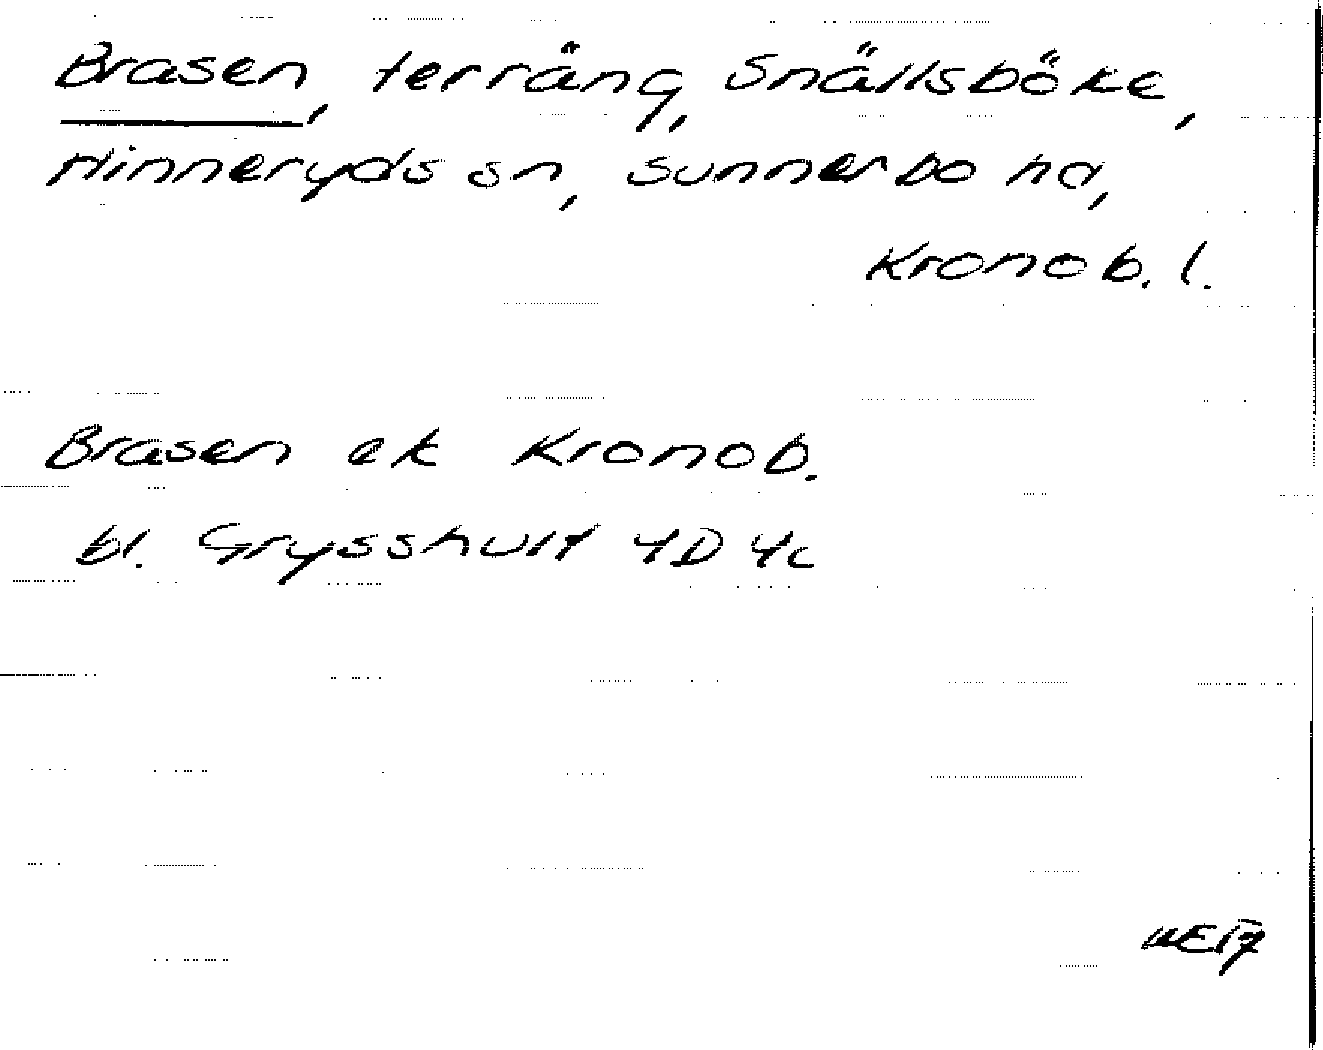 Brasen, terräng, Snällsböke,
Hinneryds sn, Sunnerbo hd,
Kronob. l.
Brasen ek Kronob.
bl. Grysshult 4D 4c